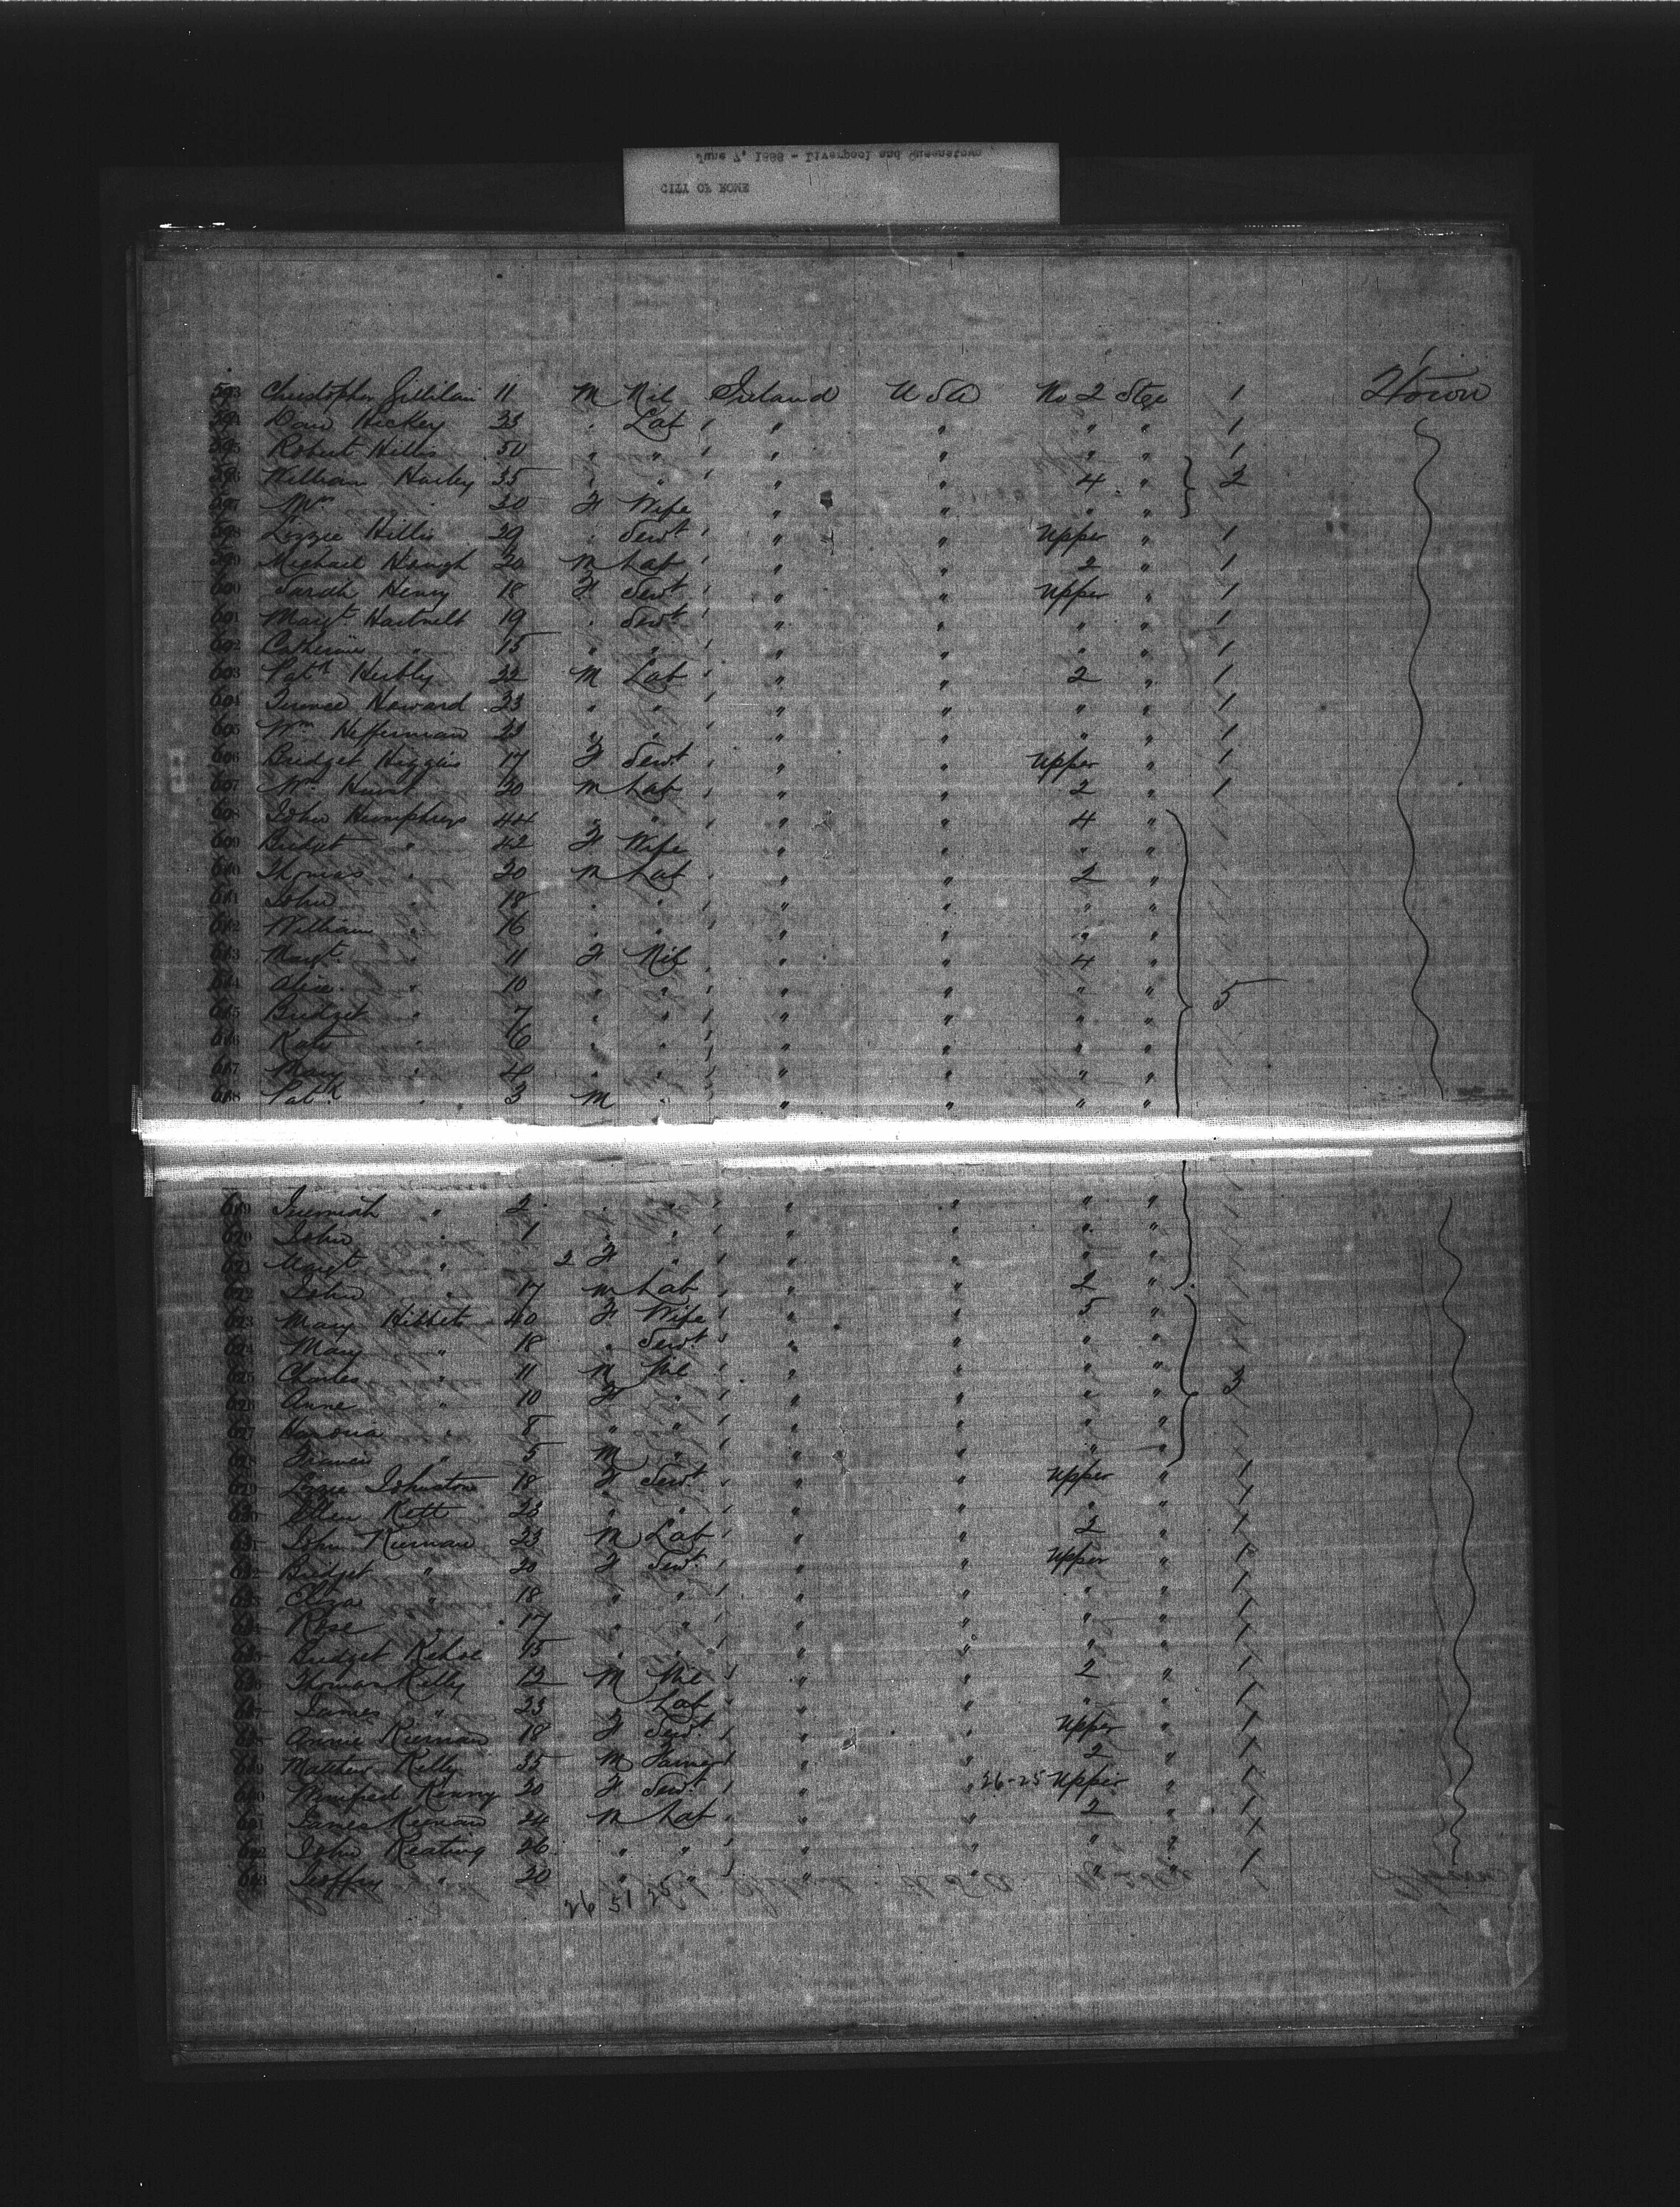 June 7, 1888 - Liverpool and Queenstown
CITY OF ROME
593 Christopher Gillilan 11 M Nil Ireland U S A No 2 Stge 1 Qtown
594 Danl Hickey 23 " Lab " " " " 1
595 Robert Hillis 50 " " " " " " 1
596 William Hurley 35 " " " " 4 " 2
597 Mrs " 30 F Wife " " " "
598 Lizzie Hillis 29 " Servt " " Upper " 1
599 Michael Hough 20 M Lab " " 2 " 1
600 Sarah Henry 18 F Servt " " Upper " 1
601 Margt Hartnett 19 " Servt " " " " 1
602 Catherine " 15 " " " " " " 1
603 Patk 22 M Lab " " 2 " 1
604 Terence Howard 23 " " " " " " 1
605 Wm Heffernan 23 " " " " " " 1
606 Bridget Higgins 17 F Servt " " Upper " 1
607 Wm Hunt 20 M Lab " " 2 " 1
608 John Humphreys 44 " " " " 4 "
609 Bridget " 42 F Wife " " " "
610 Thomas " 20 M Lab " " 2 "
611 John " 18 " " " " " "
612 William " 16 " " " " " "
613 Margt " 11 F Nil " " 4 "
614 Alice " 10 " " " " " " 5
615 Bridget " 7 " " " " " "
616 Kate " 6 " " " " " "
617 Mary " 4 " " " " " "
618 Patk " 3 M " " " " "
619 Jeremiah " 2 " " " " " "
620 John " 1 " " " " " "
621 Margt " 2 F " " " " "
622 John " 17 M Lab " " 2 "
623 Mary Hibbets 40 F Wife " " 5 "
624 Mary " 18 " Servt " " " "
625 Charles " 11 M Nil " " " " 3
626 Anne " 10 F " " " " "
627 Hanoria " 8 " " " " " "
628 Francis " 5 M " " " " "
629 Lizzie Johnston 18 F Servt " " Upper " 1
630 Ellen Kett 23 " " " " " " 1
631 John Kiernan 23 M Lab " " 2 " 1
632 Bridget " 20 F Servt " " Upper " 1
633 Eliza " 18 " " " " " " 1
634 Rose " 17 " " " " " " 1
635 Bridget Kehoe 15 " " " " " " 1
636 Thomas Kelly 12 M Nil " " 2 " 1
637 James " 23 " Lab " " " " 1
638 Annie Kiernan 18 F Servt " " Upper " 1
639 Matthew Kelly 35 M Farmer " " 2 " 1
640 Winifred Kenny 20 F Servt " " 26-25 Upper " 1
641 James Keenan 24 M Lab " " 2 " 1
642 John Keating 26 " " " " " " 1
643 Geoffry " 20 " " " " " " 1
26 51 52